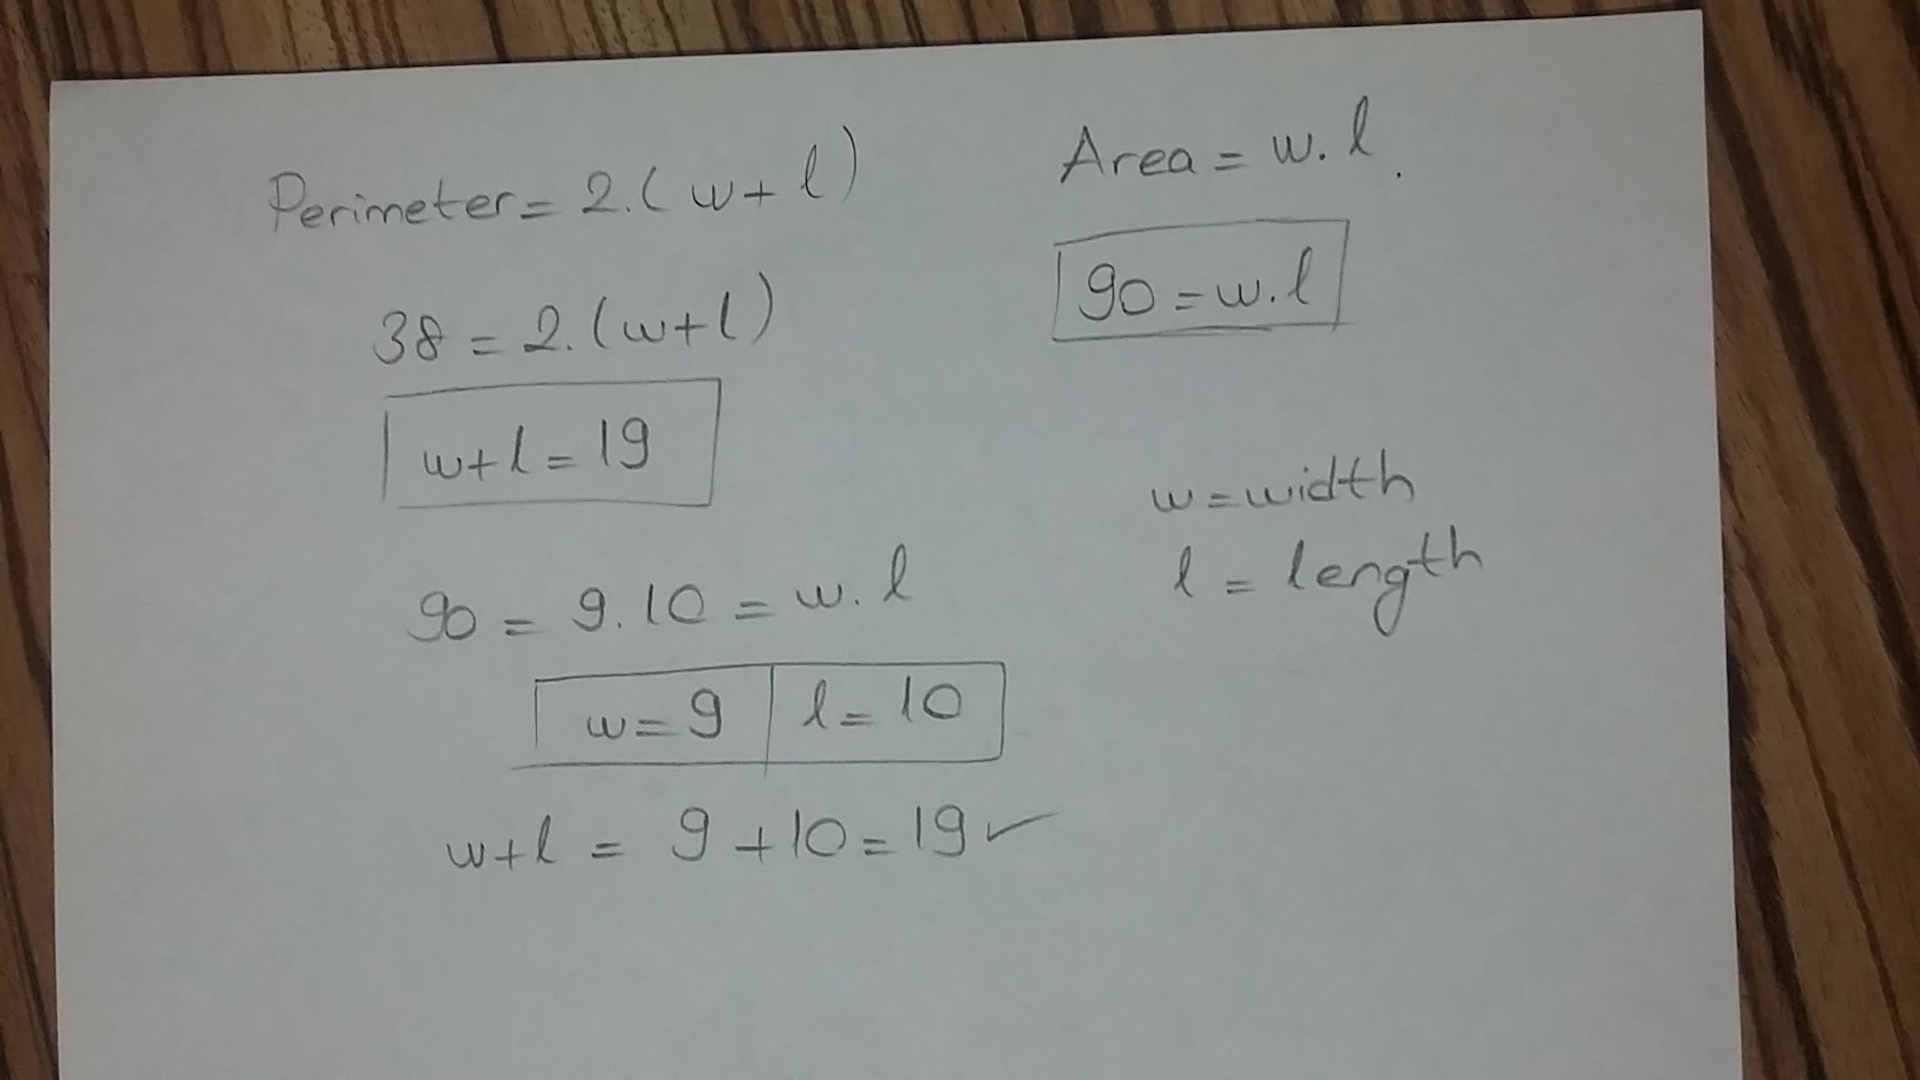 Perimeter = 2.(w+l)
38 = 2.(w+l)
w+l = 19
Area = w.l.
90 = w.l
w = width
l = length
90 = 9.10 = w.l
w = 9 | l = 10
w+l = 9+10 = 19 ✓